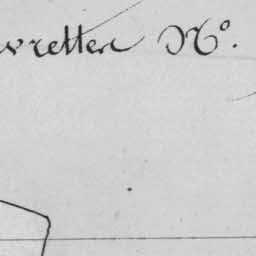 vretter N°.